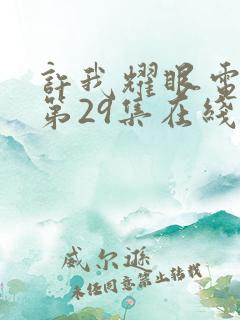 許我耀眼電
第29集在綫
威尔遜
未经同意禁止转载